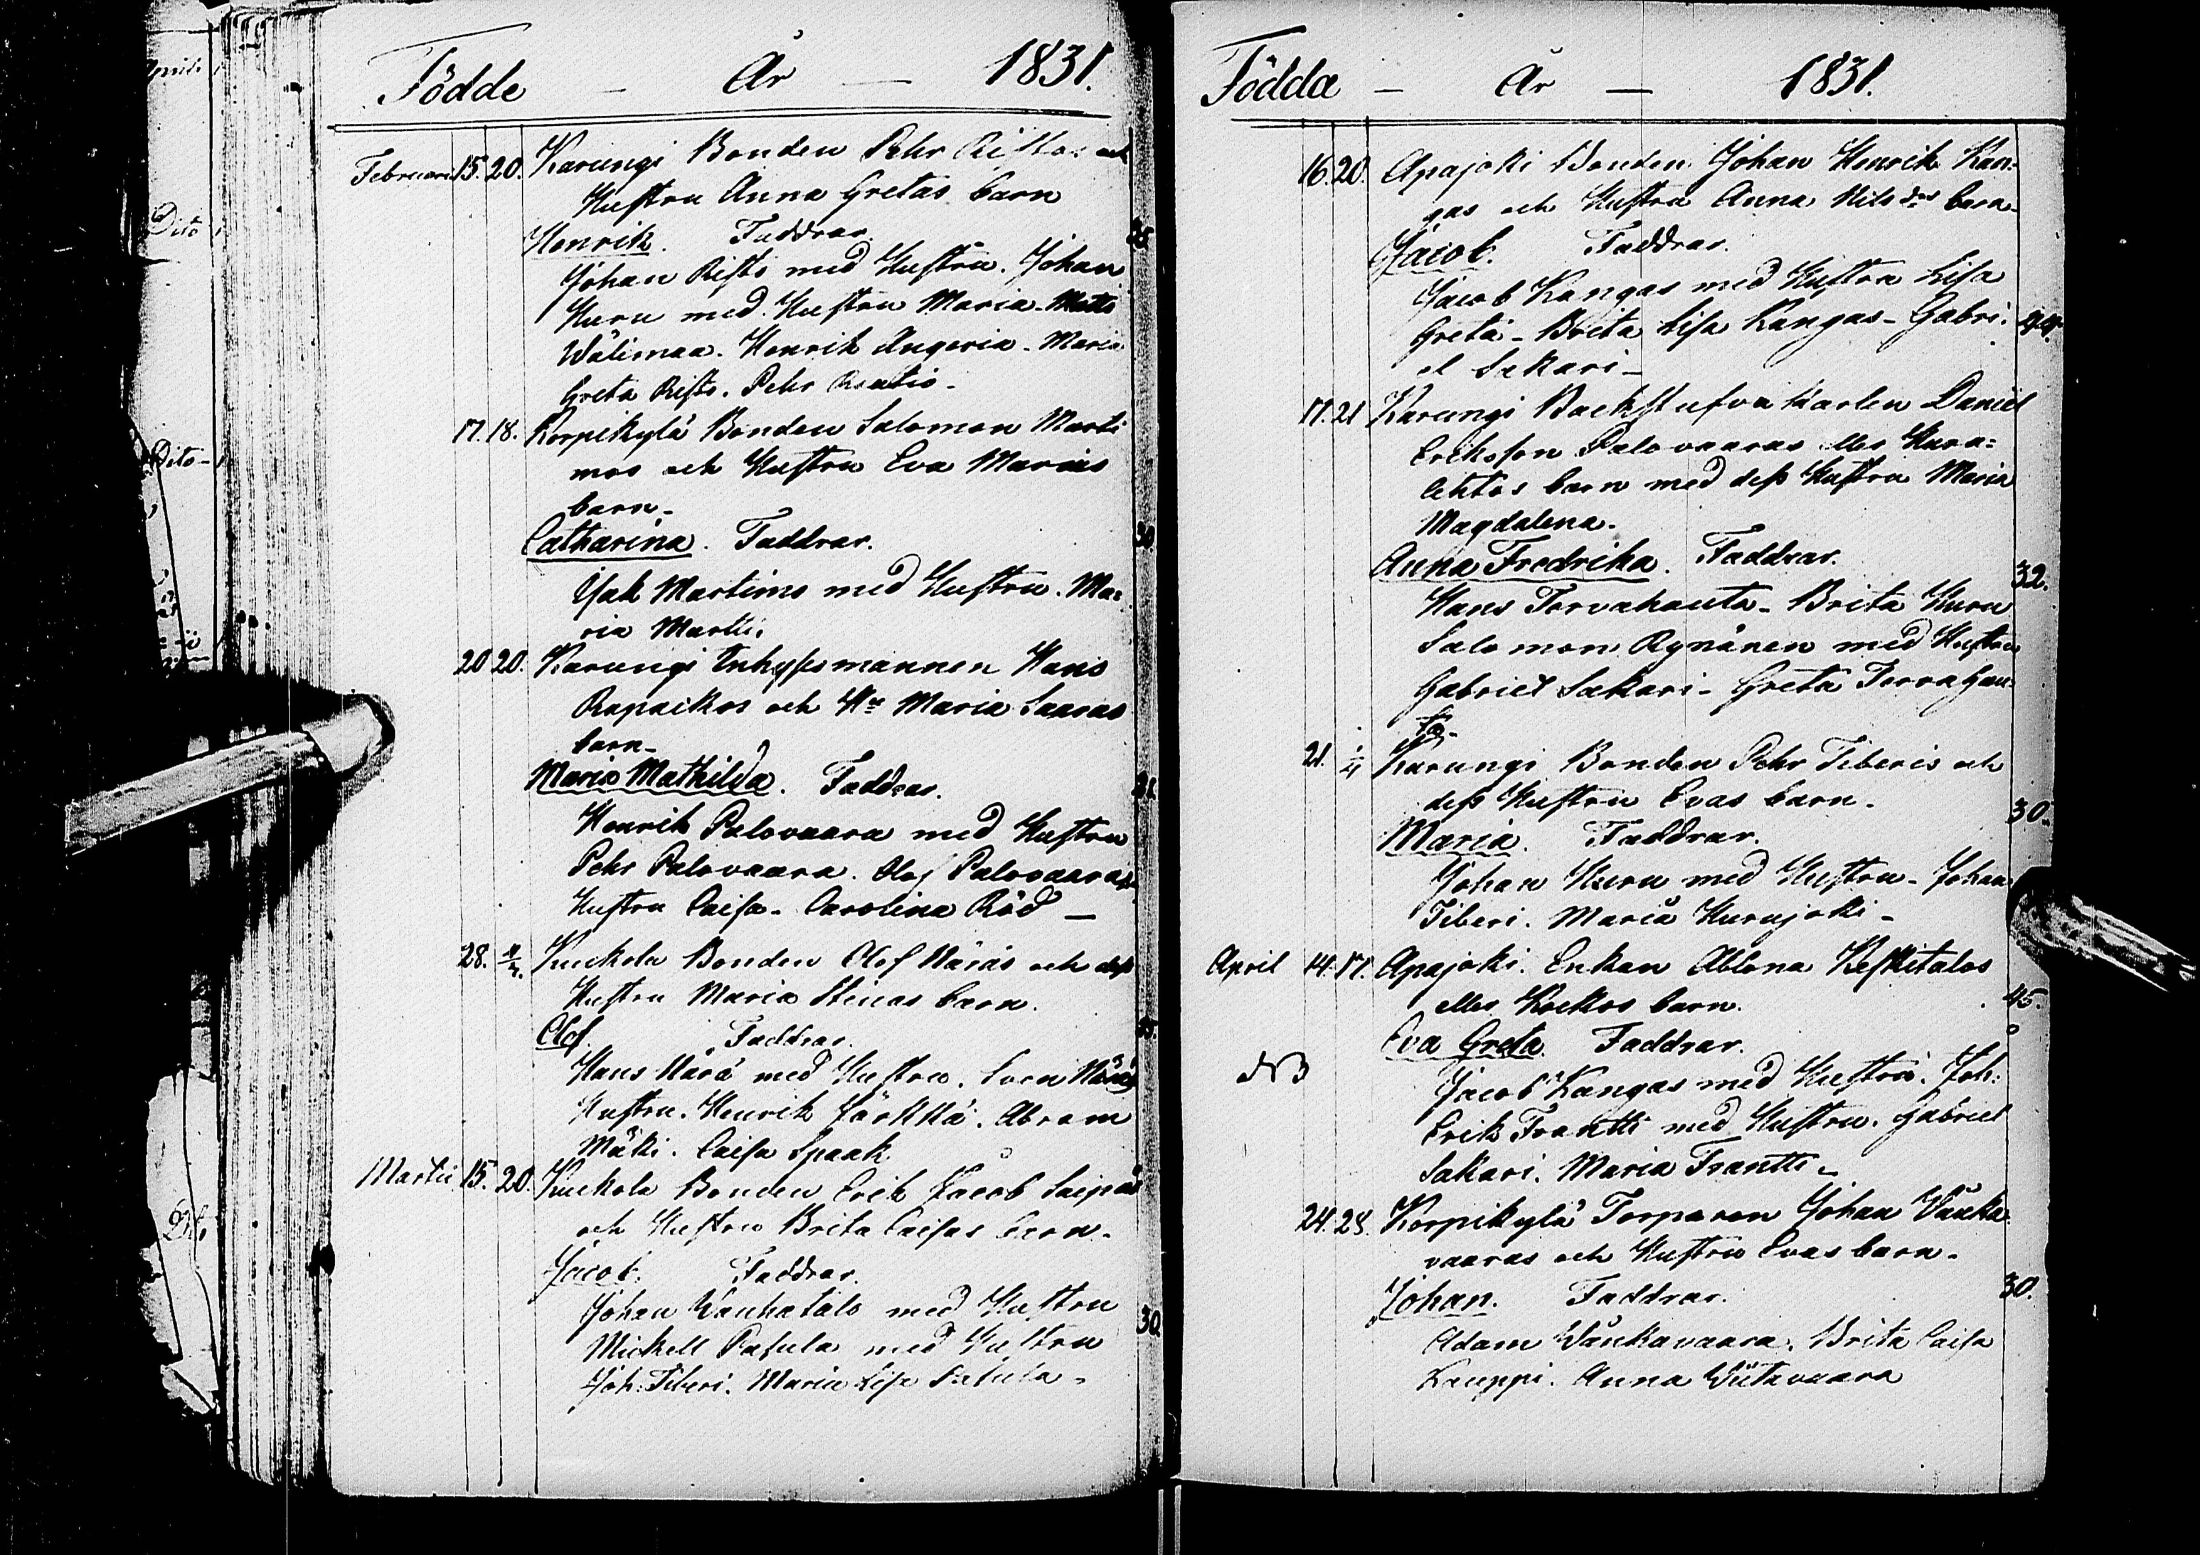 Födde – År – 1831.
Februari 15. 20. Karungi Bonden Pehr Ristos och
Hustru Anna Gretas barn
Henrik. Faddrar. 25.
Johan Risto med Hustru. Johan
Kuru med Hustru Maria. Matts
Wälimaa. Henrik Angeria. Maria
Greta Risto. Pehr Rautio.
17. 18. Korpikylä Bonden Salomon Marti
mos och Hustru Eva Marias
barn.
Catharina. Faddrar. 30.
Isak Martimo med Hustru. Ma=
ria Martti.
20 20. Karungi Inhysesmannen Hans
Rapaikkos och Hu Maria Saaras
barn.
Maria Mathilda. Faddrar. 31.
Henrik Palovaara med Hustru
Pehr Palovaara. Olof Palovaaras
Hustru Caisa. Carolina Röd –
28. Kuckola Bonden Olof Näräs och dess
Hustru Maria Stinas barn.
Olof. Faddrar. 35.
Hans Närä med Hustru. Sven Näräs
Hustru. Henrik Jarkkä. Abram
Mäki. Caisa Spaak
Martii 15. 20. Kuckola Bonden Erik Jacob Saipas
och Hustru Brita Caisas barn.
Jacob. Faddrar.
Johan Wanhatalo med Hustru 30.
Mickell Patula med Hustru
Joh: Tiberi. Maria Lisa Patula.
Födda – År – 1831.
16. 20. Apajoki Bonden Johan Henrik Kan-
gas och Hustru Anna Nilsdrs barn
Jacob. Faddrar.
Jacob Kangas med Hustru Lisa
Greta – Brita Lisa Kangas – Gabri-
el Sakari –
17. 21 Karungi Backstufvu Karlen Daniel
Eriksson Palovaaras eller Kura=
lehtos barn med dess Hustru Maria
Magdalena.
Anna Fredrika. Faddrar. 32.
Hans Torvahauta – Brita Kuru
Salomon Rynänen med Hustru
Gabriel Sakari – Greta Torvahau-
ta.
21. Karungi Bonden Pehr Tiberis och
dess Hustru Evas barn. 30.
Maria. Faddrar.
Johan Kuru med Hustru – Johan
Tiberi. Maria Kurujoki –
April 14. 17. Apajoki. Enkan Ablona Keskitalos
eller Kockos barn. 45.
Eva Greta Faddrar.
NB Jacob Kangas med Hustru. Joh:
Erik Frantti med Hustru. Gabriel
Sakari. Maria Frantti –
24. 25. Korpikylä Torparen Johan Vänkä
vaaras och Hustru Evas barn.
Johan. Faddrar. 30.
Adam Wänkävaara. Brita Caisa
Kauppi. Anna Wiitavaara